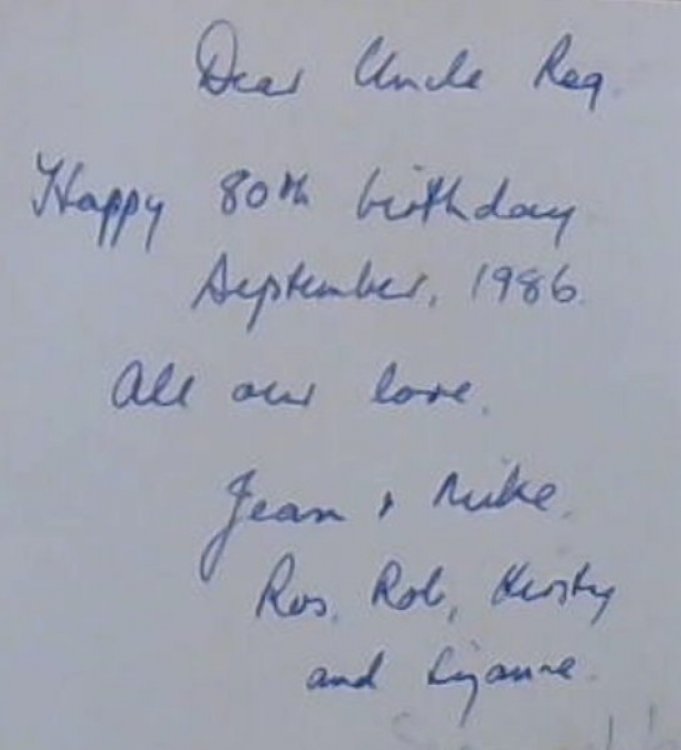 Dear Uncle Reg.
Happy 80th birthday
September, 1986.
All our love.
Jean & Mike.
Ros, Rob, Kirsty
and